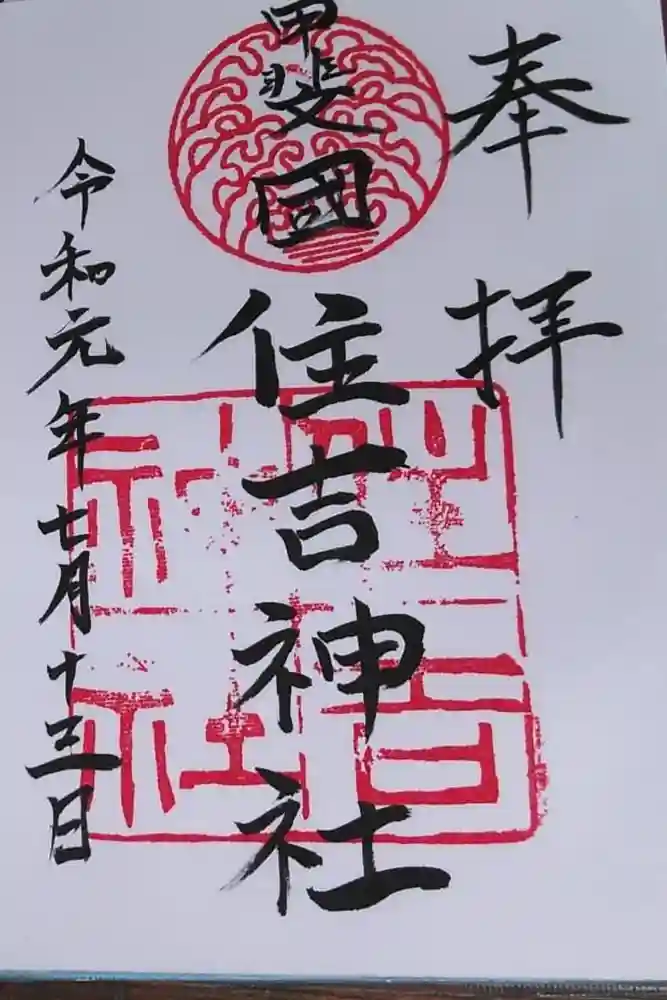 奉拝
甲斐國
住吉神社
令和元年七月十三日
住吉神社